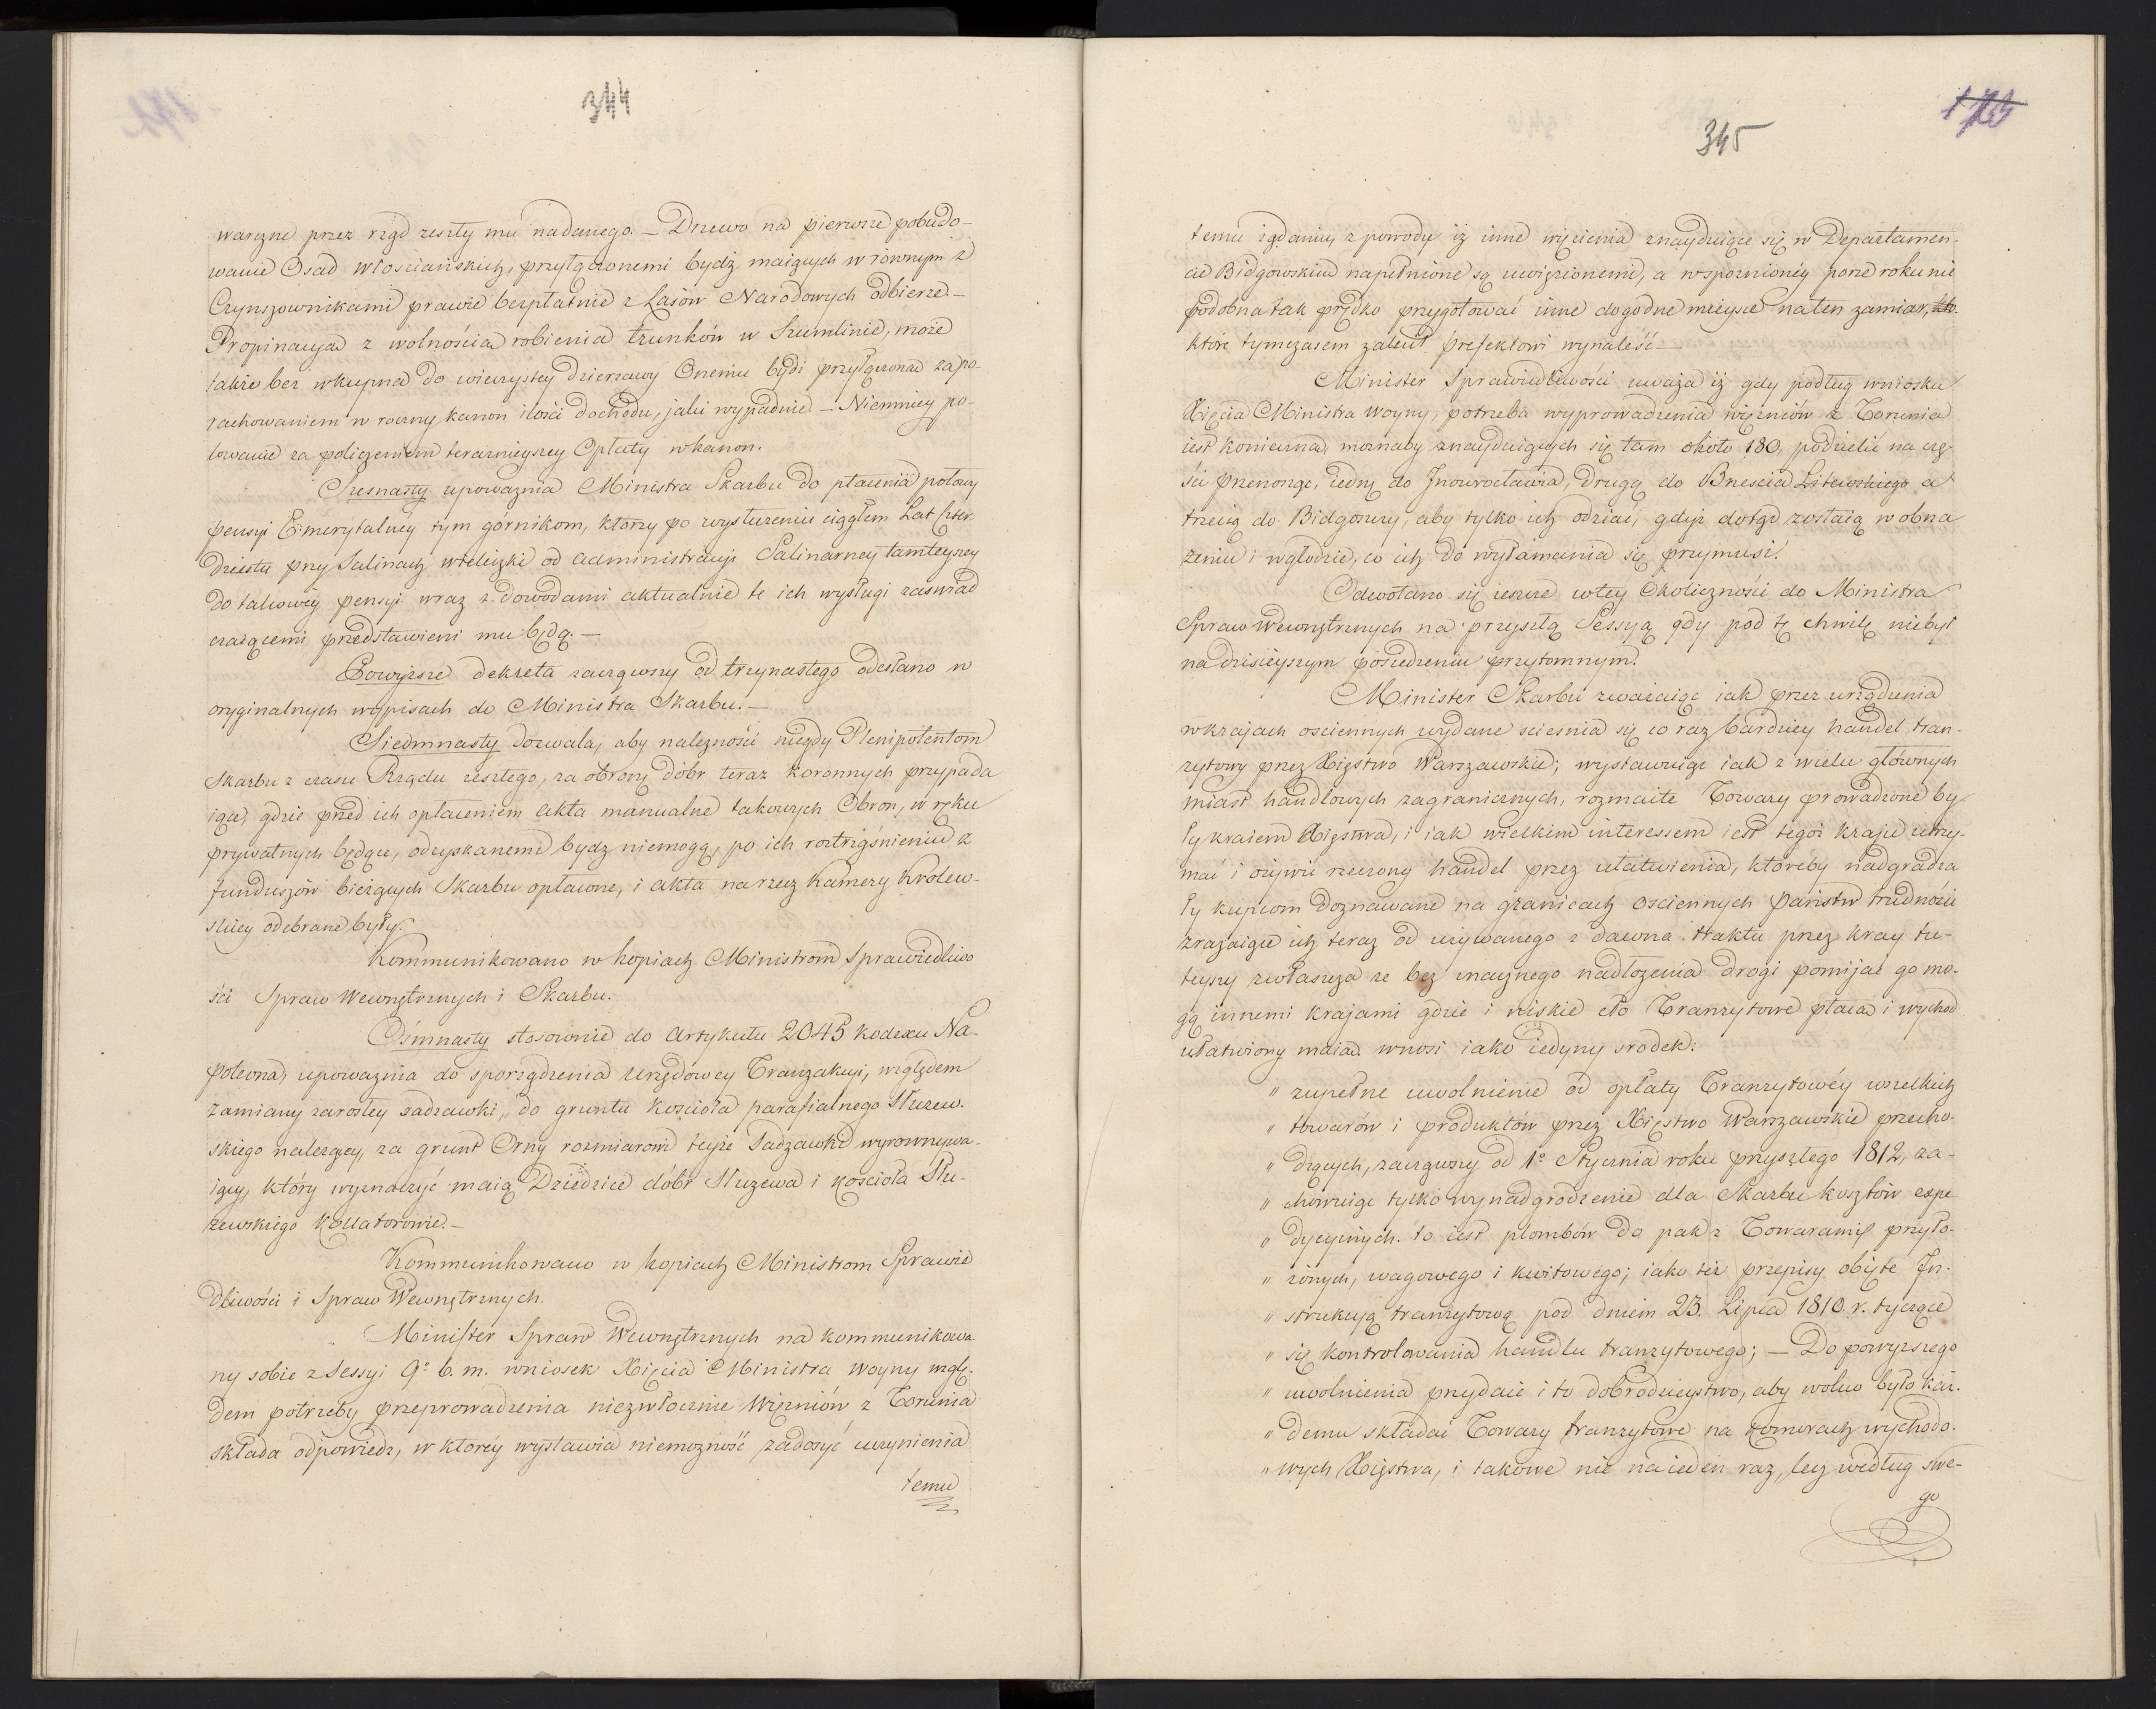 344
warczne przez rząd zeszły mu nadanego. — Drzewo na pierwsze pobudo-
wanie Osad włosciańskich, przyłączonemi bydź maiących w równym z
Czynszownikami prawie bezpłatnie z Lasów Narodowych odbierze. —
Propinacya z wolnościa robienia trunków w Szumlinie, może
także bez wkupna do wieczystey dzierzawy Onemu bydź przyłączona za po-
rachowaniem w roczny kanon ilości dochodu, jaki wypadnie. — Niemniey po-
lowanie za policzeniem terazniejszey Opłaty w kanon.
Szesnasty upowaznia Ministra Skarbu do płacenia połowy
pensyi Emerytalney tym górnikom, którzy po wysłuzeniu ciągłem Lat czter-
dziestu przy Salinach wieliczki od administracyi Salinarney tamteyszey
do takowéy pensyi wraz z dowodami aktualnie te ich wysługi zaswiad
czaiącemi przedstawieni mu będą. —
Powyższe dekreta zacząwszy od trzynastego odesłano w
oryginalnych wypisach do Ministra Skarbu. —
Siedmnasty dozwala, aby nalezności niegdy Plenipotentom
Skarbu z czasu Rządu zeszłego, za obrony dóbr teraz koronnych przypada
iące, gdzie przed ich opłaceniem akta manualne takowych Obron, w ręku
prywatnych będące, odzyskanemi bydz niemogą, po ich roztrząśnieniu z
funduszów bieżących Skarbu opłacone, i akta na rzecz Kamery Królew-
skiey odebrane były.
Kommunikowano w kopiach Ministrom Sprawiedliwo
ści Spraw Wewnętrznych i Skarbu.
Ośmnasty stosownie do Artykułu 2045 kodexu Na-
poleona, upowaznia do sporządzenia urzędowey Tranzakcyi, względem
zamiany zarosłey sadzawki, do gruntu kościoła parafialnego Służew-
skiego nalezącey, za grunt Orny rozmiarowi teyże Sadzawki wyrownywa-
iący, który wyznaczyć maią Dziedzice dóbr Służewa i kościoła Słu-
żewskiego Kollatorowie. —
Kommunikowano w kopiach Ministrom Sprawie
dliwości i Spraw Wewnętrznych.
Minister Spraw Wewnętrznych na kommunikowa
ny sobie z Sessyi 9º b. m. wniosek Xięcia Ministra Woyny wzglę-
dem potrzeby przeprowadzenia niezwłocznie Więzniów z Torunia
składa odpowiedz, w któréy wystawia niemozność zadosyć uczynienia
temu
345
temu żądaniu z powodu iż inne więzienia znayduiące się w Departamen-
cie Bidgowskim napełnione są uwięzionemi, a w spoznionéy porze roku nie
podobna tak prędko przygotować inne dogodne mieysce na ten zamiar, któ-
które tymczasem zalecił prefektowi wynaleść —
Minister Sprawiedliwości uważa iż gdy podług wniosku
Xięcia Ministra Woyny, potrzeba wyprowadzenia więzniów z Torunia
iest konieczna, moznaby znayduiących się tam około 180, podzielić na czę-
ści przenosząc, iedną do Jnowrocławia, drugą do Brzescia Litewskiego a
trzecią do Bidgoszczy, aby tylko ich odziać, gdyż dotąd zostaią w obna
żeniu i w głodzie, co ich do wyłamania się przymusi.
Odwołano się ieszcze w tey Okoliczności do Ministra
Spraw Wewnętrznych na przyszłą Sessyą gdy pod tę chwilę niebył
na dzisieyszym posiedzeniu przytomnym.
Minister Skarbu zwazaiąc iak przez urządzenia
w krajach osciennych wydane sciesnia się co raz bardziey handel tran-
zytowy przez Xięstwo Warszawskie; wystawuiąc iak z wielu głównych
miast handlowych zagranicznych, rozmaite Towary prowadzone by-
ły kraiem Xięstwa, i iak wielkim interessem iest tegoż kraju utrzy-
mać i ożywić rzeczony handel przez ułatwienia, któreby nadgradza
ły kupcom doznawane na granicach osciennych państw trudności
zrażaiące ich teraz od używanego z dawna traktu przez kray tu-
teyszy zwłaszcza ze bez znacznego nadłożenia drogi pomijać go mo-
gą innemi krajami gdzie i niskie cło Tranzytowe płacą i wychod
ułatwiony maią. wnosi iako iedyny srodek:
" zupełne uwolnienie od opłaty Tranzytowéy wszelkich
" towarów i produktów przez Xięstwo Warszawskie przecho-
" dzących, zacząwszy od 1º Stycznia roku przyszłego 1812, za-
" chowuiąc tylko wynadgrodzenie dla Skarbu kosztów expe
" dycyinych. to iest plombów do pak z Towarami przyło-
" żonych, wagowego i kwitowego; iako też przepisy objęte Jn-
" strukcyą tranzytową pod dniem 23. Lipca 1810. r. tyczące
" się kontrolowania handlu tranzytowego; — Do powyzszego
" uwolnienia przydaie i to dobrodzieystwo, aby wolno było kaz-
" demu składać Towary tranzytowe na komorach wychodo-
" wych Xięstwa, i takowe nie na ieden raz, lecz według swe-
go